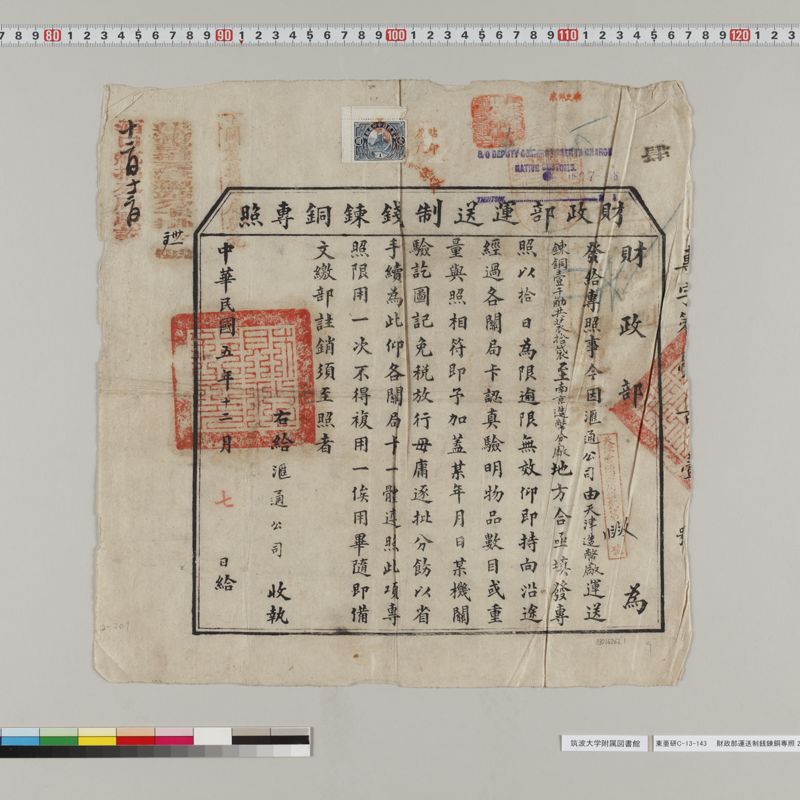 財政部運送制錢鍊銅專照
財政部 為
發給專照事今因滙通公司由天津造幣廠運送
鍊銅壹千觔共裝拾袋至南京造幣分廠地方合亟填發專
照以拾日為限逾限無效仰即持向沿途
經過各關局卡認真驗明物品數目或重
量與照相符即予加蓋某年月日某機關
驗訖圖記免稅放行毋庸逐批分飭以省
手續為此仰各關局卡一體遵照此項專
照限用一次不得複用一俟用畢隨即備
文繳部註銷須至照者
右給滙通公司 收執
中華民國五年十二月 七 日給
肆
S/O DEPUTY
NATIVE CUSTOMS.
TIENTSIN.
2-209
筑波大学附属図書館
東亜研C-13-143 財政部運送制銭錬銅専照 2
7 8 9 80 1 2 3 4 5 6 7 8 9 90 1 2 3 4 5 6 7 8 9 100 1 2 3 4 5 6 7 8 9 110 1 2 3 4 5 6 7 8 9 120 1 2 3